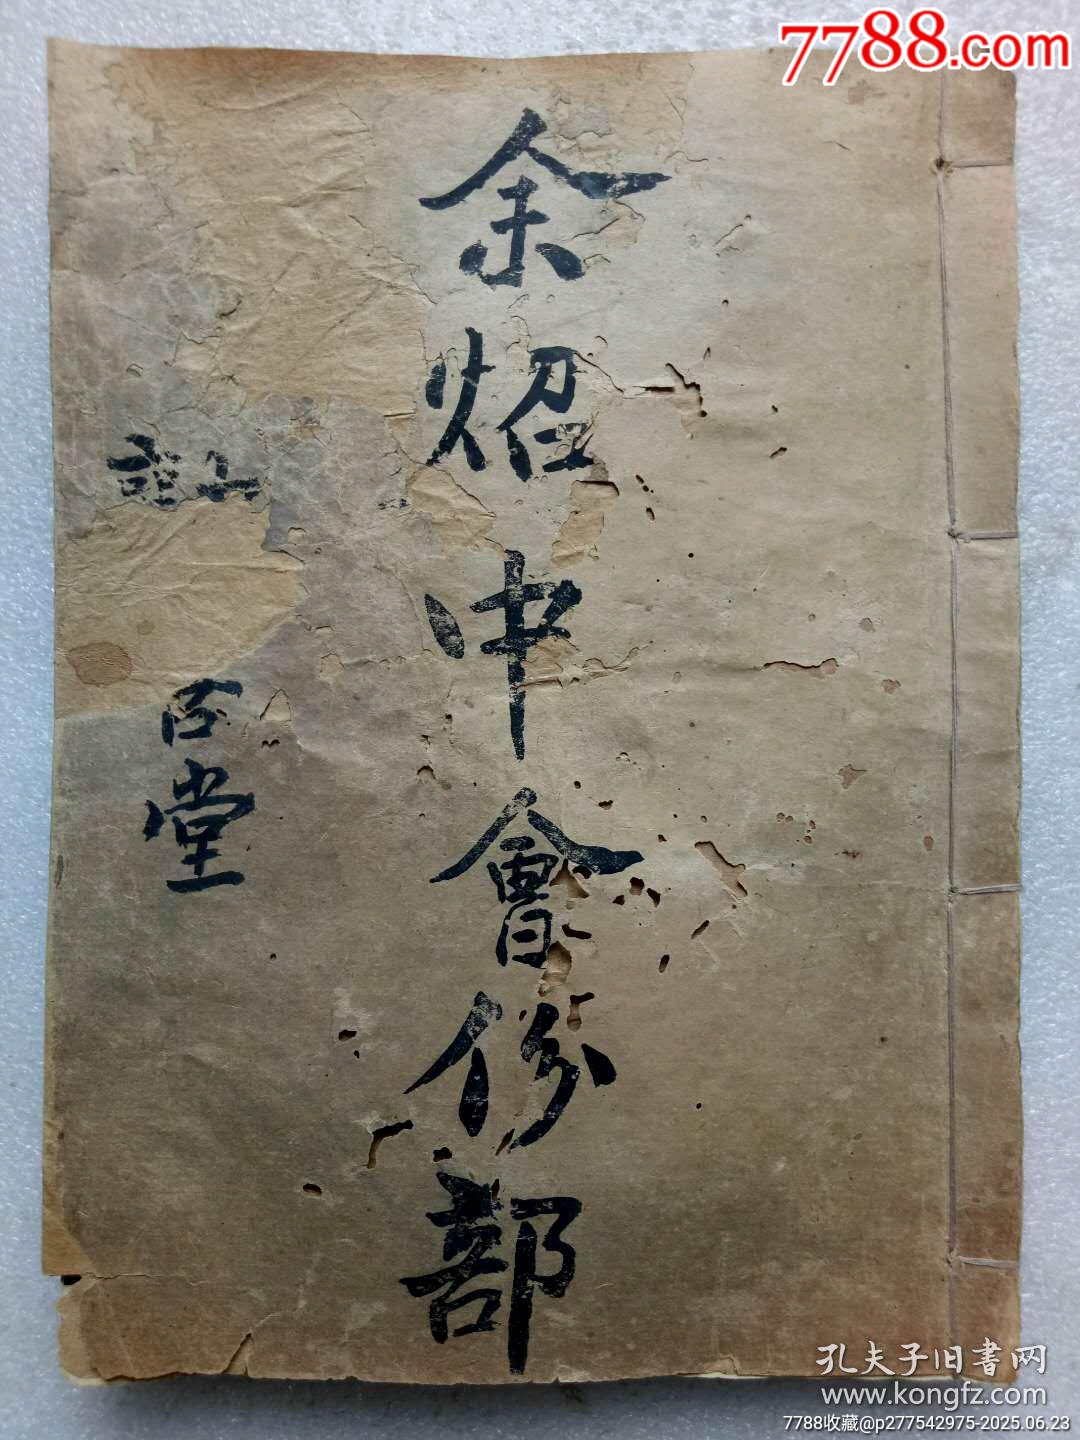 7788.com
余炤中會份部
堂
孔夫子旧書网
www.kongfz.com
7788收藏@p277542975-2025.06.23